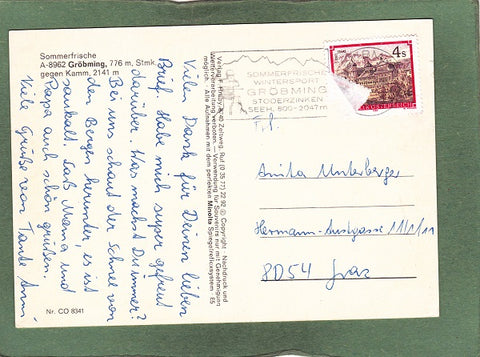 Sommerfrische
A-8962 Gröbming, 776 m, Stmk.
gegen Kamm, 2141 m
Vielen Dank für Deinen lieben
Brief. Habe mich super gefreut
darüber. Was machst Du immer?
Bei uns schaut der Schnee von
den Bergen herunter, es ist
saukalt. Laß Mama und
Papa auch schön grüßen.
Viele Grüße von Tante Anni
Nr. CO 8341
Zeltweg, Ruf (0 35 77) 22 92 © Copyright - Nachdruck und
Weiterverarbeitung verboten. — Verwendung für Souvenirs nur mit Genehmigung
möglich. Alle Aufnahmen mit dem perfekten Minolta Spiegelreflexsystem
SOMMERFRISCHE
WINTERSPORT
GRÖBMING
STODERZINKEN
SEEH. 800-2047m
4 S
Anita Unterberger
8054 Graz